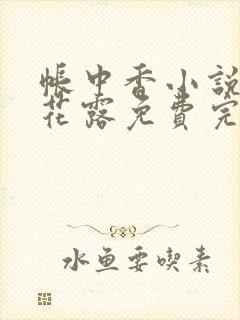 帳中香小說
花露免費完
水鱼要喫素